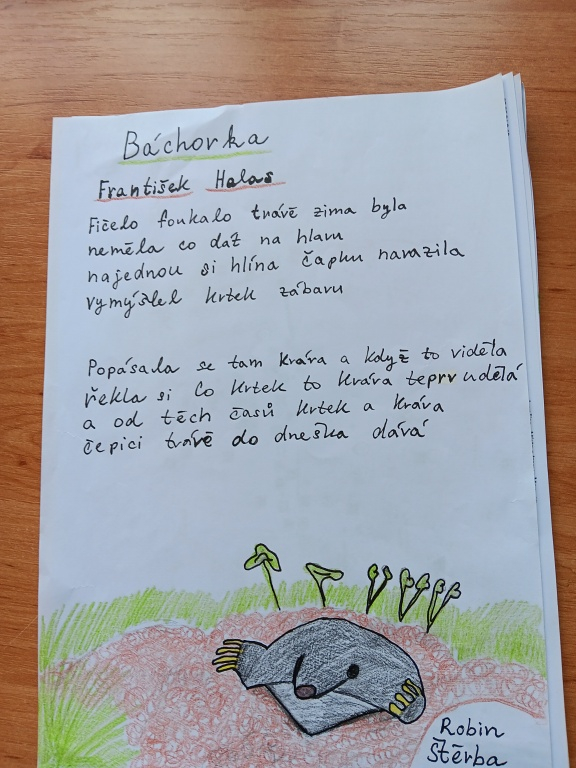 Báchorka
František Halas
Fičelo foukalo trávě zima byla
neměla co dat na hlavu
najednou si hlína čapku narazila
vymýšlel krtek zábavu
Popásala se tam kráva a když to viděla
řekla si co krtek to kráva teprv udělá
a od těch časů krtek a kráva
čepici trávě do dneška dává
Robin
Štěrba